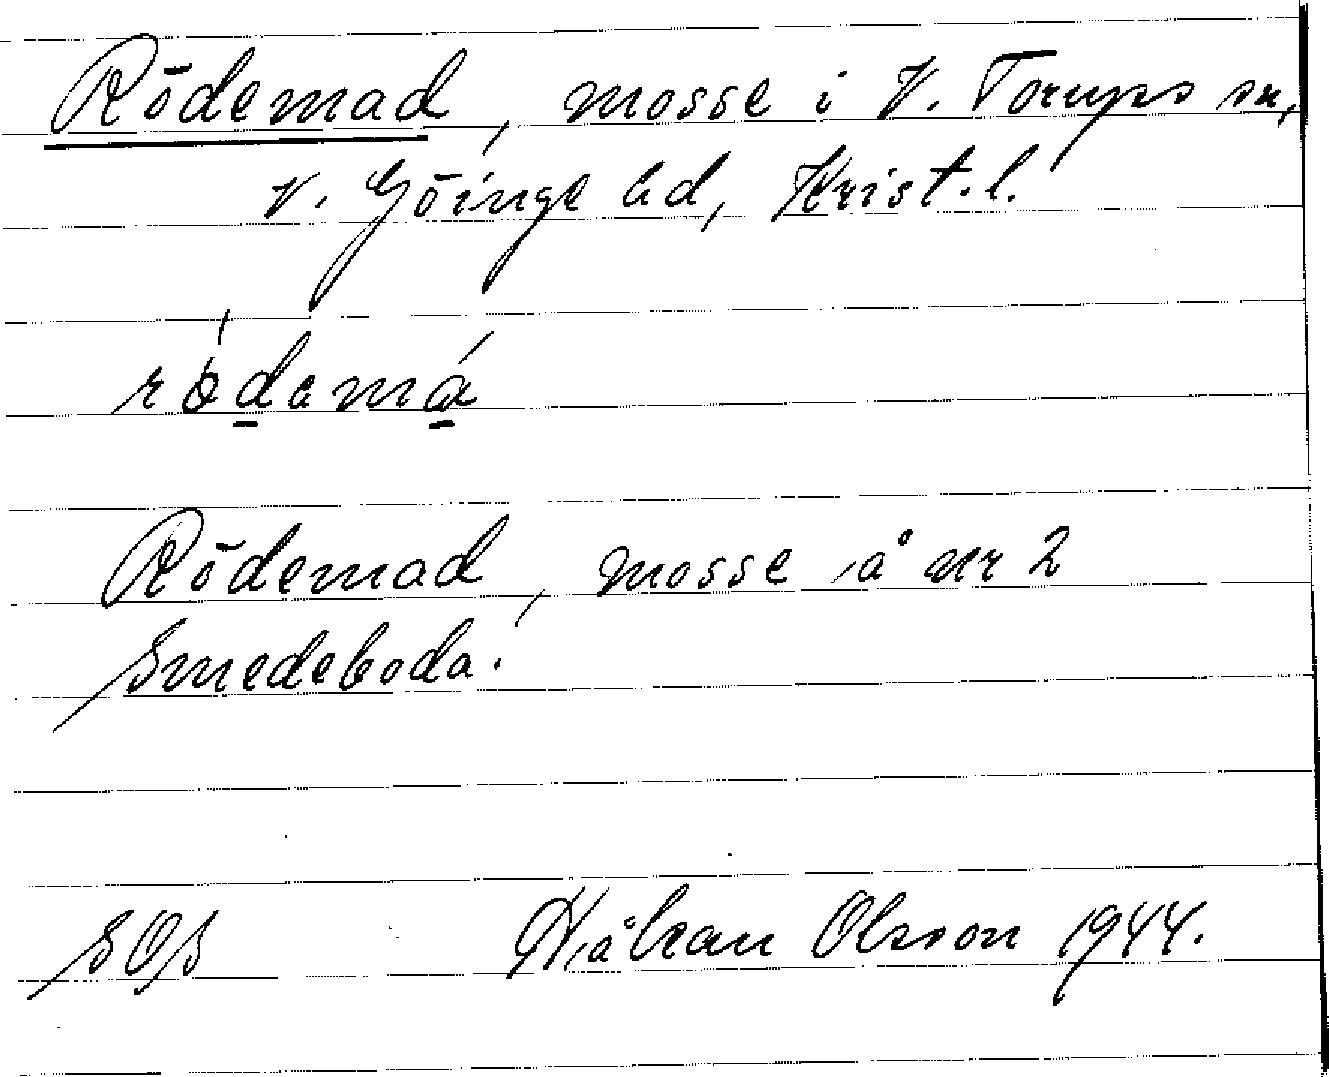 Rödemad, mosse i V. Torups sn,
V. Göinge hd, Krist. l.
rödamá
Rödemad, mosse å nr 2
Smedeboda.
SOS Håkan Olsson 1944.